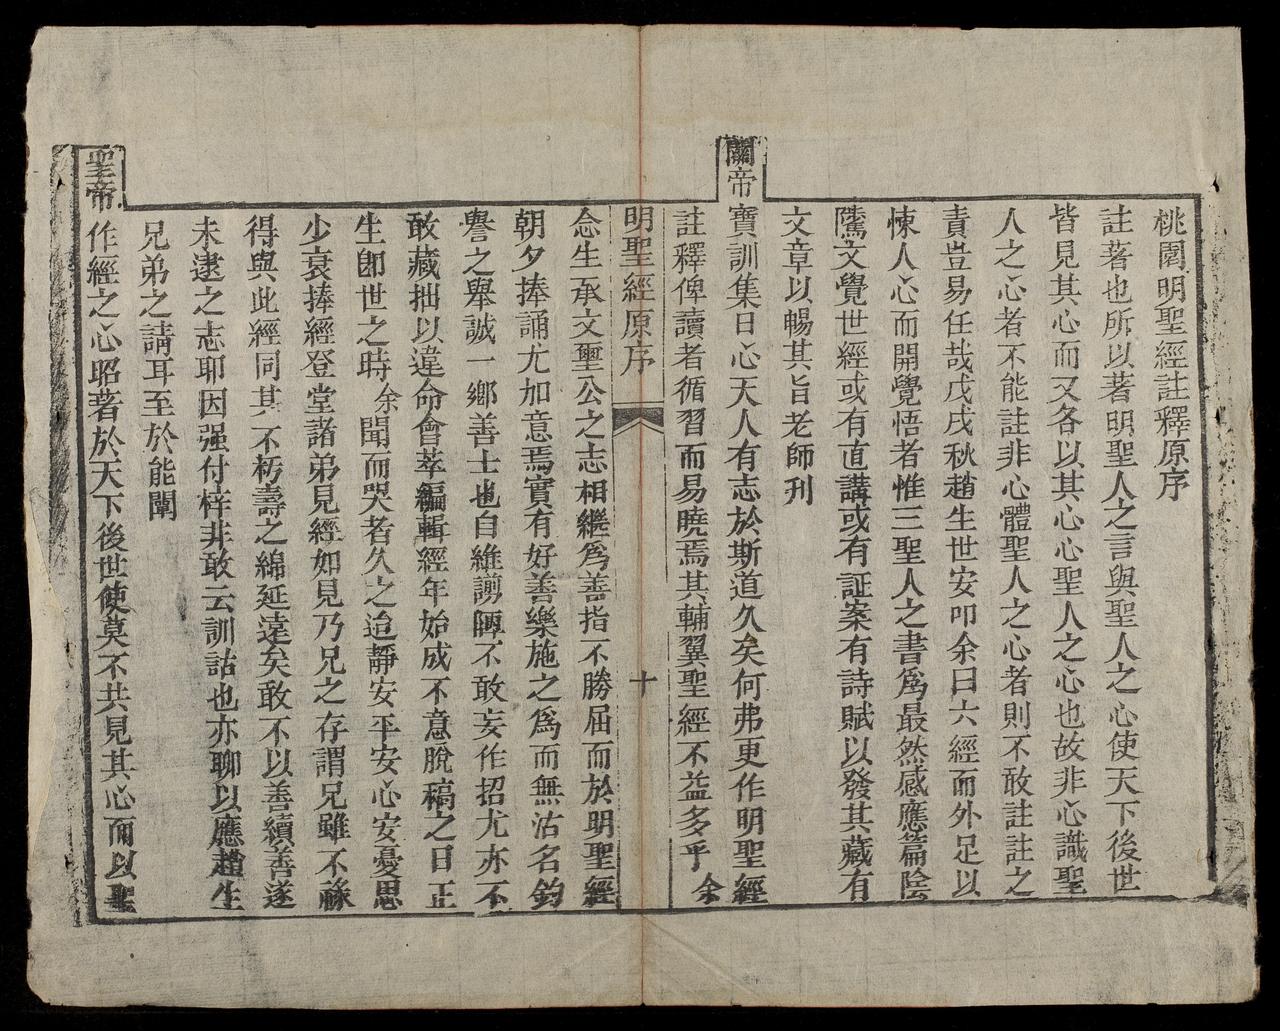 桃園明聖經註釋原序
註著也所以著明聖人之言與聖人之心使天下後世
皆見其心而又各以其心心聖人之心也故非心識聖
人之心者不能註非心體聖人之心者則不敢註註之
責豈易任哉戊戌秋趙生世安叩余曰六經而外足以
悚人心而開覺悟者惟三聖人之書為最然感應篇陰
隲文覺世經或有直講或有証案有詩賦以發其藏有
文章以暢其旨老師刋
關帝寶訓集日心天人有志於斯道久矣何弗更作明聖經
註釋俾讀者循習而易曉焉其輔翼聖經不益多乎余
明聖經原序 十
念生承文璽公之志相繼為善指不勝屈而於明聖經
朝夕捧誦尤加意焉實有好善樂施之為而無沽名釣
譽之舉誠一鄉善士也自維謭陋不敢妄作招尤亦不
敢藏拙以違命會萃編輯經年始成不意脫稿之日正
生卽世之時余聞而哭者久之迨靜安平安心安憂思
少衰捧經登堂諸弟見經如見乃兄之存謂兄雖不祿
得與此經同其不朽壽之綿延遠矣敢不以善續善遂
未逮之志耶因强付梓非敢云訓詁也亦聊以應趙生
兄弟之請耳至於能闡
聖帝作經之心昭著於天下後世使莫不共見其心而以聖